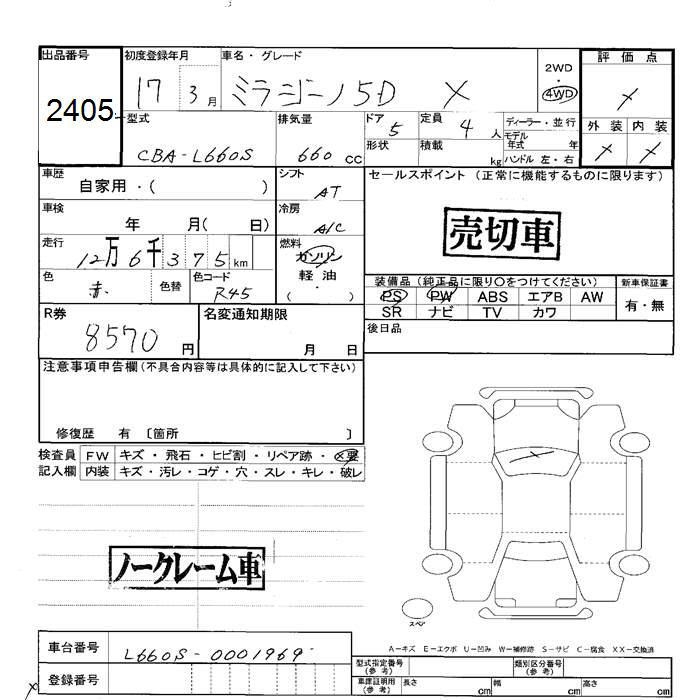 出品番号
2405
初度登録年月
17 3月
車名・グレード
ミラジーノ 5D X
2WD
・
4WD
評価点
X
外装 内装
X X
型式
CBA-L660S
排気量
660 CC
ドア 5
形状
定員 4 人
積載 kg
ディーラー・並行
モデル年式 年
ハンドル 左・右
車歴
自家用・( )
シフト
AT
セールスポイント (正常に機能するものに限ります)
売切車
車検
年 月( 日)
冷房
A/C
走行
12万6千375km
燃料
ガソリン
軽油
( )
色
赤
色替
色コード
R45
装備品 (純正品に限り〇をつけてください)
PS PW ABS エアB AW
SR ナビ TV カワ
新車保証書
有・無
R券
8570 円
名変通知期限
月 日
後日品
注意事項申告欄 (不具合内容等は具体的に記入して下さい)
修復歴 有 〔箇所 〕
検査員記入欄
FW キズ・飛石・ヒビ割・リペア跡・X要
内装 キズ・汚レ・コゲ・穴・スレ・キレ・破レ
X
ノークレーム車
スペア
A-キズ E-エクボ U-凹み W-補修跡 S-サビ C-腐食 XX-交換済
車台番号
L660S-0001969
登録番号
型式指定番号(参考)
類別区分番号(参考)
車庫証明用(参考)
長さ cm 幅 cm 高さ cm